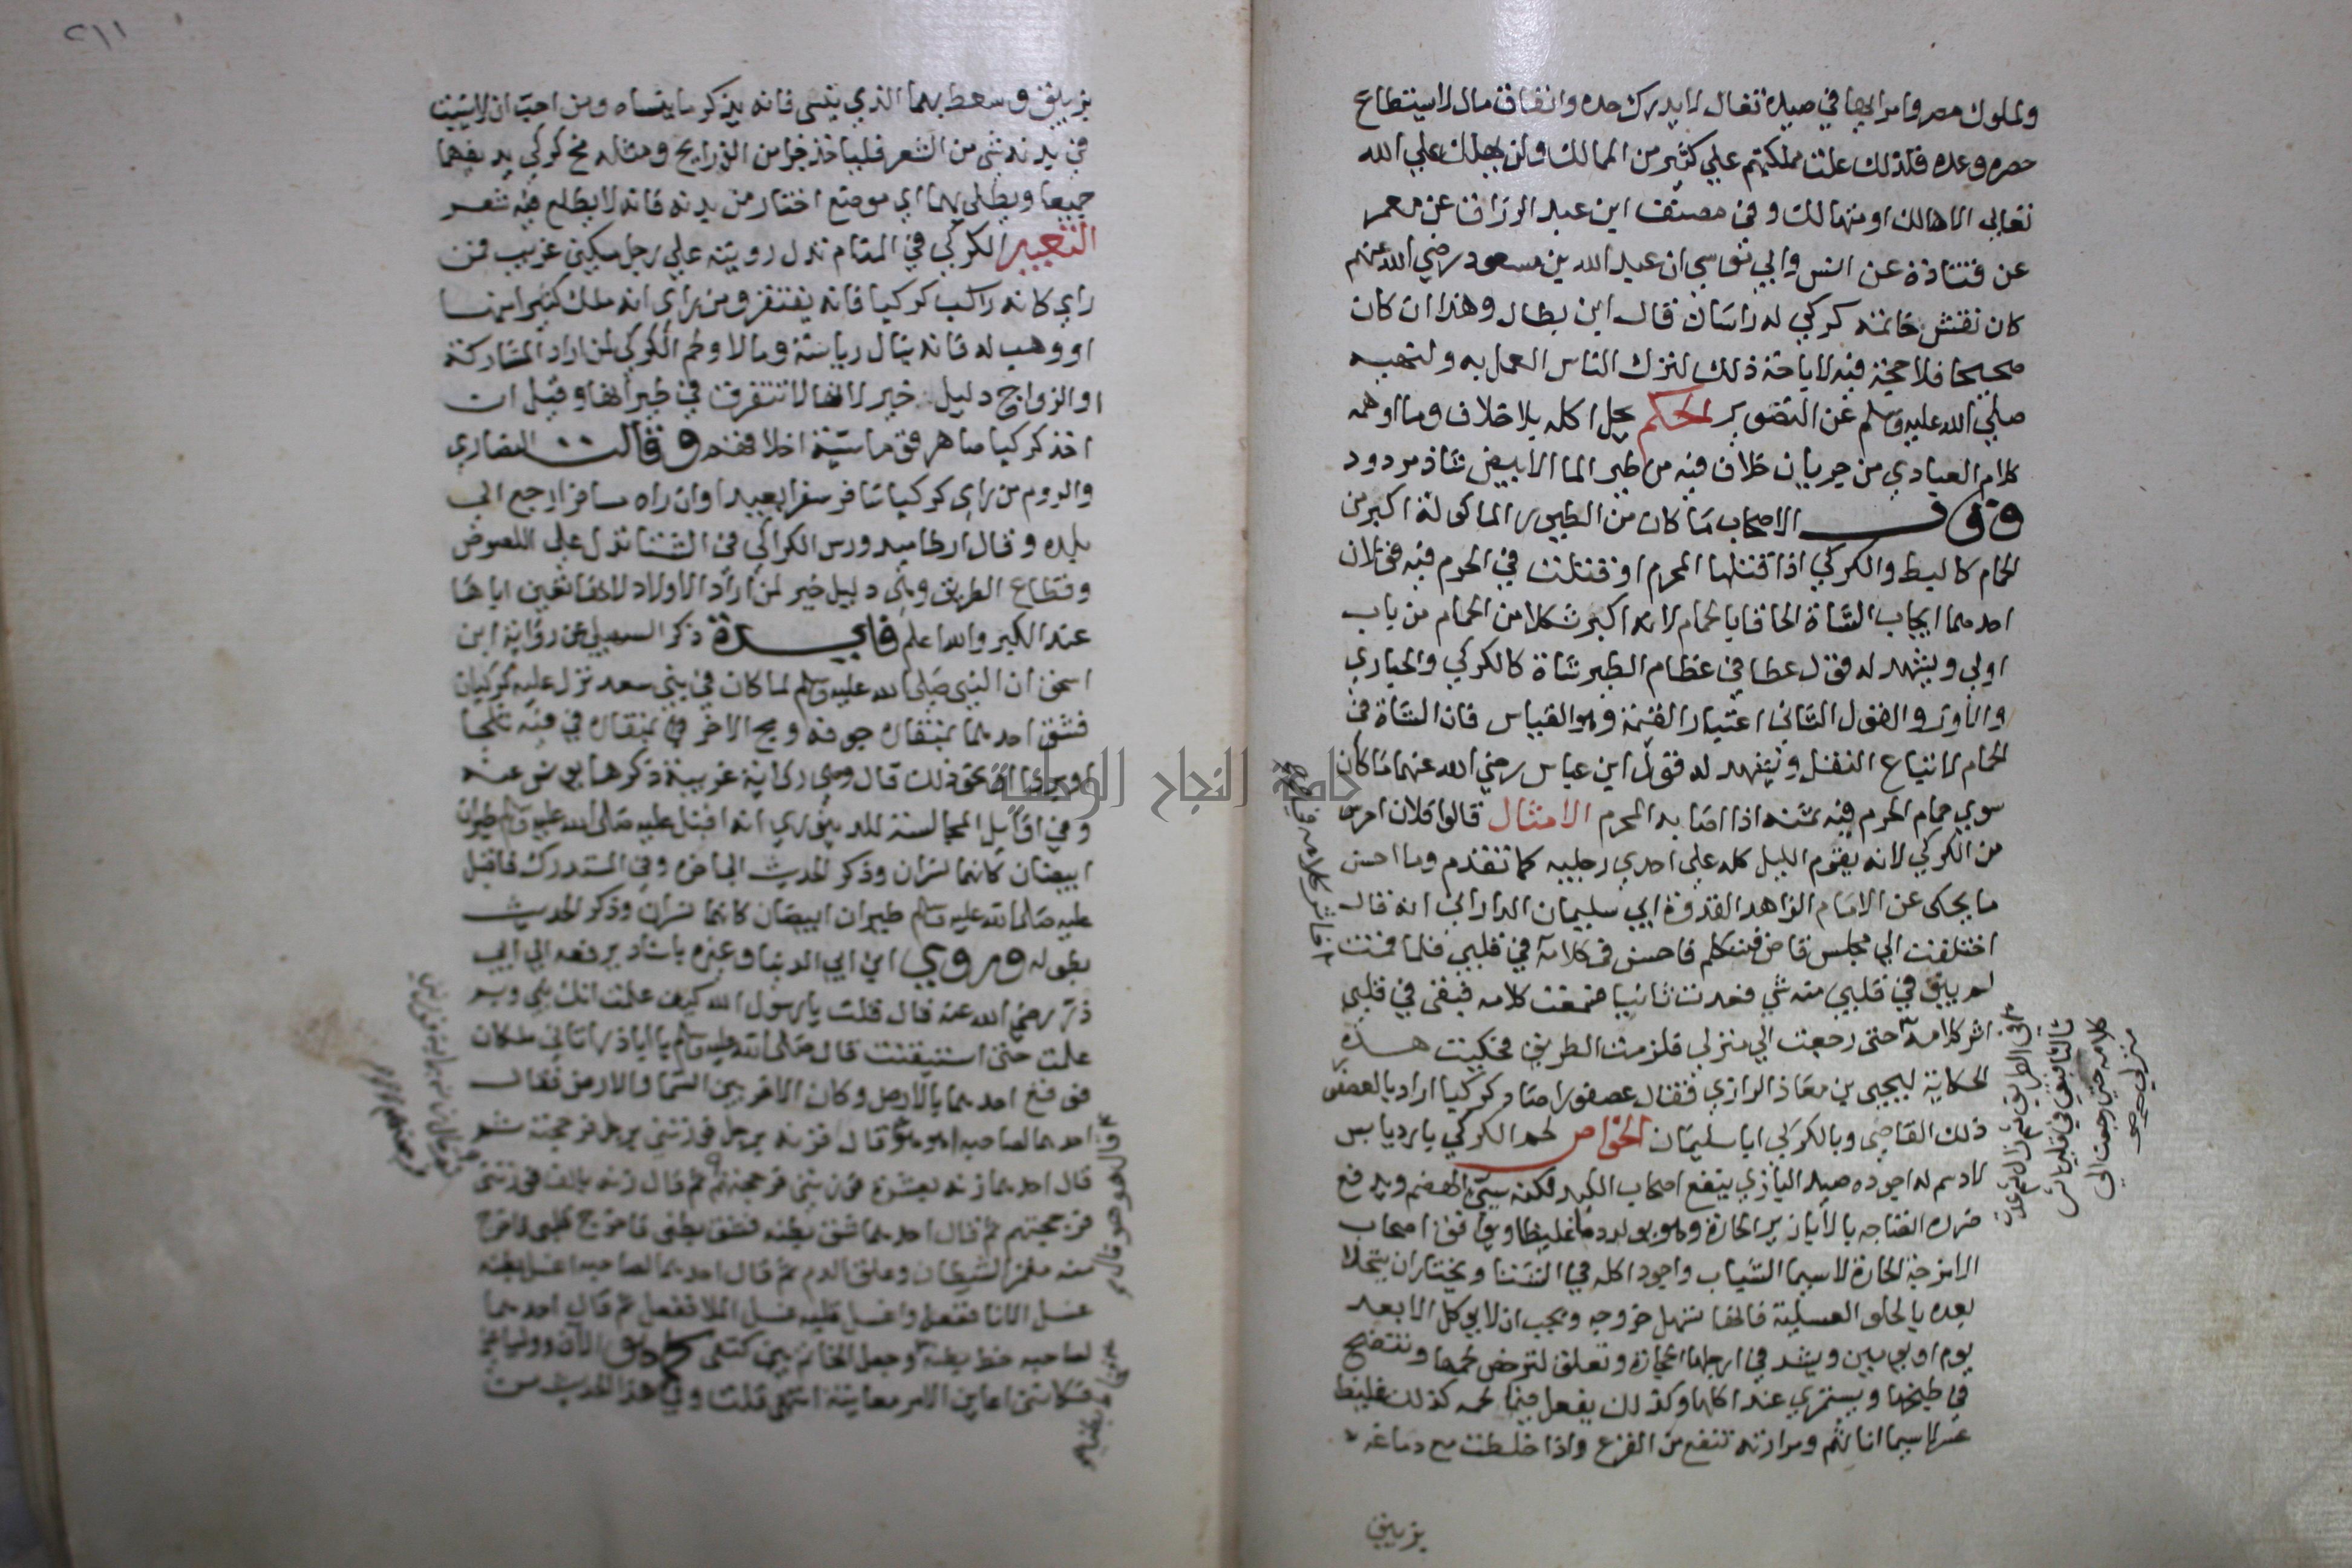 ولملوك مصر وامرائها في صيده تغال لا يدرك حده وانفاق مال لا يستطاع
حصره وعده فلذلك علت مملكتهم علي كثير من الممالك ولن يهلك علي الله
تعالي الا هالك او متهالك وفي مصنف ابن عبد الرزاق عن معمر
عن قتادة عن انس وابي موسي ان عبد الله بن مسعود رضي الله عنهم
كان نقش خاتمه كركي له راسان قال ابن بطال وهذا ان كان
صحيحا فلا حجة فيه لاباحة ذلك لترك الناس العمل به ولنهيه
صلي الله عليه وسلم عن التصوير الحكم يحل اكله بلا خلاف وما اوهمه
كلام العبادي من جريان خلاف فيه من طير الما الابيض شاذ مردود
وقول الاصحاب ما كان من الطيور الماكولة اكبر من
الحمام كالبط والكركي اذا قتلها المحرم او قتلت في الحرم فيه قولان
احدهما ايجاب الشاة الحاقا بالحمام لانه اكبر شكلا من الحمام من باب
اولي ويشهد له قول عطا في عظام الطير شاة كالكركي والحباري
والاوز والقول الثاني اعتبار القيمة وهو القياس فان الشاة في
الحمام لاتباع النقل ويشهد له قول ابن عباس رضي الله عنهما ما كان
سوي حمام الحرم فيه ثمنه اذا اصابه المحرم الامثال قالوا فلان احرس
من الكركي لانه يقوم الليل كله علي احدي رجليه كما تقدم وما احسن
ما يحكى عن الامام الزاهد القدوة ابي سليمان الداراني انه قال
اختلفت الي مجلس قاص فتكلم فاحسن في كلامه في قلبي فلما قمت
لم يبق في قلبي منه شي فعدت ثانيا فسمعت كلامه فبقى في قلبي
اثر كلامه حتى رجعت الي منزلي فلزمت الطريق فحكيت هذه
الحكاية ليحيى بن معاذ الرازي فقال عصفور اصطاد كركيا اراد بالعصفور
ذلك القاضي وبالكركي ابا سليمان الخواص لحم الكركي بارد يابس
لا دسم له اجوده صيد البازي ينفع اصحاب الكد لكنه سيئ الهضم ويدفع
ضرره انضاجه بالابازير الحارة وهو يولد دما غليظا ويوافق اصحاب
الامزجة الحارة لا سيما الشباب واجود اكله في الشتا ويختار ان يتحلا
بعده بالحلو العسلية فانها تسهل خروجه ويجب ان لا يوكل الا بعد
يوم او يومين ويشد في ارجلها الحجارة وتعلق لترخص لحمها وتنضج
في طبخها ويستمري عند اكلها وكذلك يفعل فيما لحمه كذلك غليظ
ومرارته تنفع من القرع واذا خلطت مع دماغه
بزيبق
بزيبق وسعط بهما الذي ينسى فانه يذكر ما ينساه ومن احب ان لا ينبت
في بدنه شي من الشعر فلياخذ جزا من الزرايح ومثله مخ كركي يدقهما
جميعا ويطلي بهما اي موضع اختار من بدنه فانه لا يطلع فيه شعر
التعبير الكركي في المنام تدل رويته علي رجل مسكين غريب فمن
راي كانه راكب كركيا فانه يفتقر ومن راي انه ملك كثيرا منها
او وهب له فانه ينال رياسة ومالا ولحم الكركي لمن اراد المشاركة
او الزواج دليل خير لانها لا تتفرق في طيرانها وقيل ان
اخذ كركيا صاهر قوما سيئة اخلاقهم وقالت النصاري
والروم من راي كركيا سافر سفرا بعيدا وان راه مسافرا رجع الي
بلده وقال ارطاميدورس الكراكي في الشتا تدل علي اللصوص
وقطاع الطريق وهي دليل خير لمن اراد الاولاد لانها تعين اباها
عند الكبر والله اعلم فايدة ذكر السهيلي عن رواية ابن
اسحق ان النبي صلى الله عليه وسلم لما كان في بني سعد نزل عليه كركيان
فشق احدهما بمنقاره جوفه ومج الاخر بمنقاره في فيه ثلجا
او بردا او نحو ذلك قال وهي رواية غريبة ذكرها يونس عنه
وفي اوايل المجالسة للدينوري انه اقبل عليه صلى الله عليه وسلم طيران
ابيضان كانهما نسران وذكر الحديث الي اخره وفي المستدرك فاقبل
عليه صلى الله عليه وسلم طيران ابيضان كانهما نسران وذكر الحديث
بطوله وروي ابن ابي الدنيا وغيره باسناد يرفعه الي ابي
ذر رضي الله عنه قال قلت يا رسول الله كيف علمت انك نبي وبم
علمت حتى استيقنت قال صلى الله عليه وسلم يا ابا ذر اتاني ملكان
فوقع احدهما بالارض وكان الاخر بين السما والارض فقال
احدهما لصاحبه اهو هو قال فزنه برجل فوزنني برجل فرجحته ثم
قال احدهما زنه بعشرة فوزنني فرجحتهم ثم قال زنه بالف فوزنني
فرجحتهم ثم قال احدهما شق بطنه فشق بطني فاخرج قلبي فاخرج
منه مغمز الشيطان وعلق الدم ثم قال احدهما لصاحبه اغسل بطنه
غسل الانا ففعل واغسل قلبه غسل الملا ففعل ثم قال احدهما
لصاحبه خط بطنه وجعل الخاتم بين كتفي كما هو الان ووليا عني
فكانني اعاين الامر معاينة انتهى قلت وفي هذا الحديث من